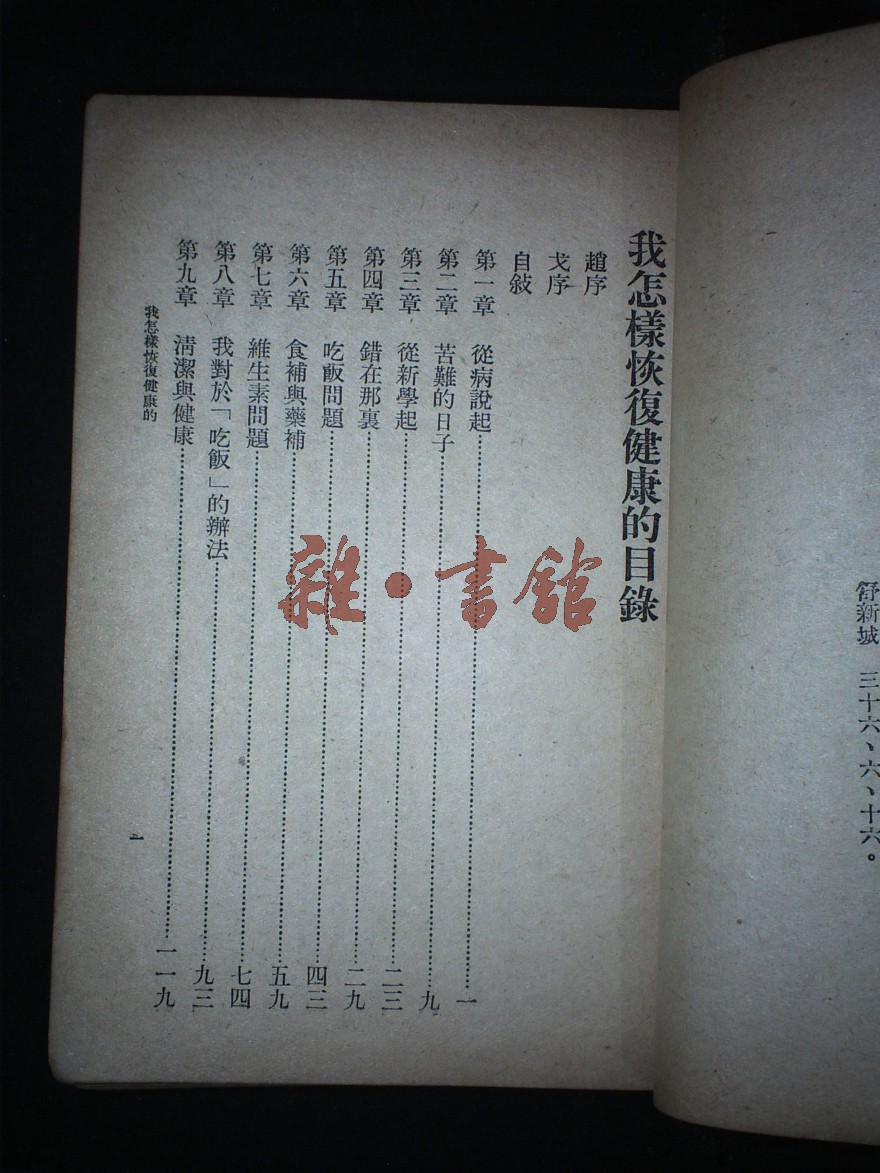 舒新城　三十六、六、十六。
我怎樣恢復健康的目錄
趙序
戈序
自敍
第一章　從病說起⋯⋯一
第二章　苦難的日子⋯⋯九
第三章　從新學起⋯⋯二三
第四章　錯在那裏⋯⋯二九
第五章　吃飯問題⋯⋯四三
第六章　食補與藥補⋯⋯五九
第七章　維生素問題⋯⋯七四
第八章　我對於「吃飯」的辦法⋯⋯九三
第九章　淸潔與健康⋯⋯一一九
我怎樣恢復健康的
一
雜·書館